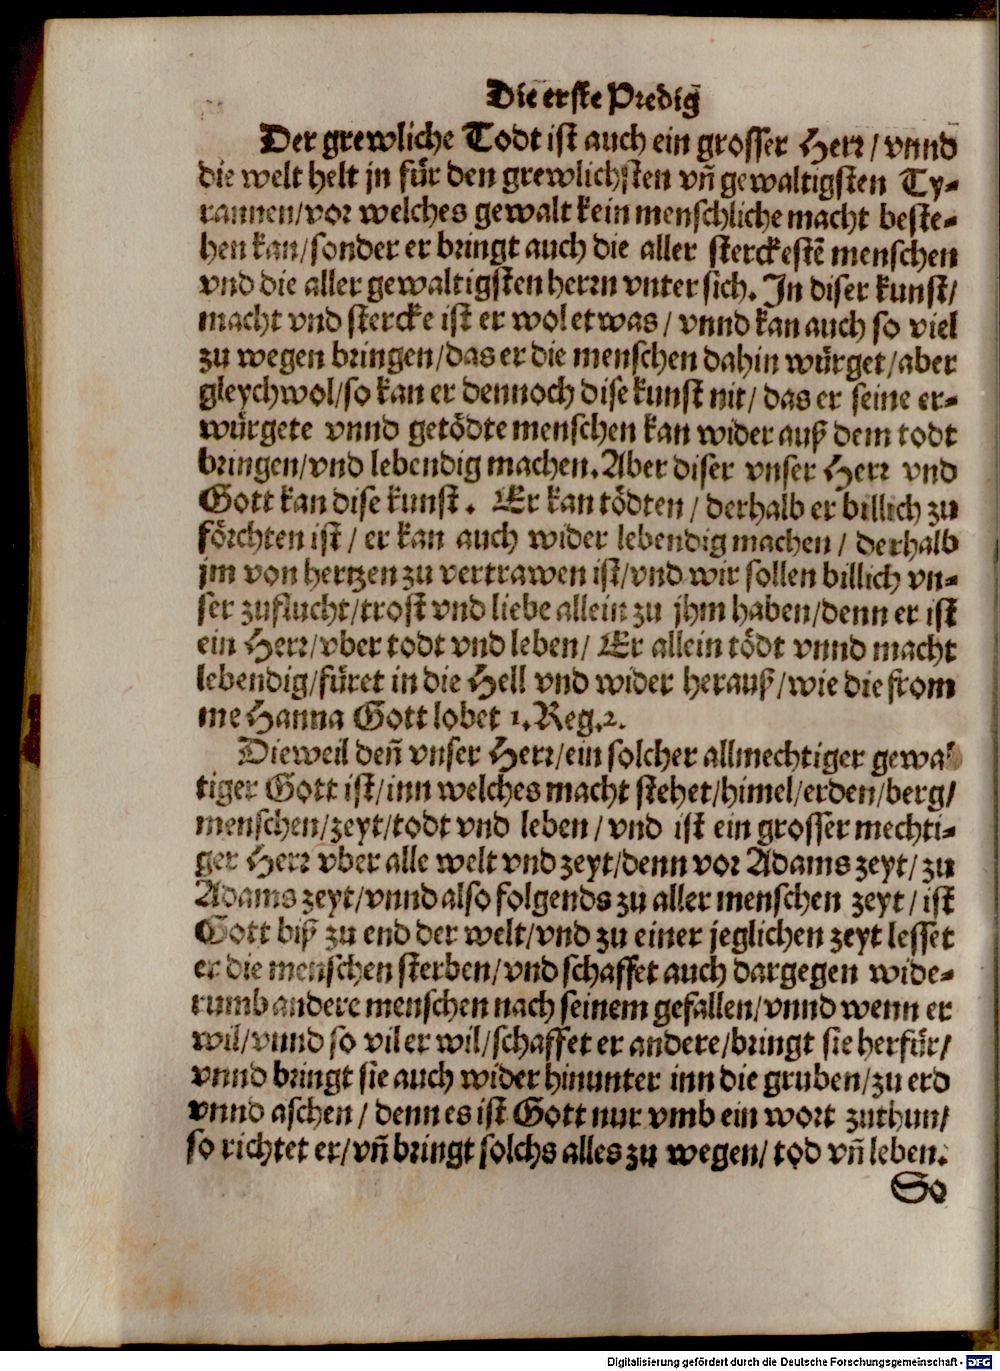 Die erste Predig
Der grewliche Todt ist auch ein grosser Herr / vnnd
die welt helt jn für den grewlichsten vñ gewaltigsten Ty-
rannen/vor welches gewalt kein menschliche macht beste-
hen kan/sonder er bringt auch die aller sterckestẽ menschen
vnd die aller gewaltigsten herrn vnter sich. In diser kunst/
macht vnd stercke ist er wol etwas / vnnd kan auch so viel
zu wegen bringen/das er die menschen dahin würget/aber
gleychwol/so kan er dennoch dise kunst nit/ das er seine er-
würgete vnnd getödte menschen kan wider auß dem todt
bringen/vnd lebendig machen. Aber diser vnser Herr vnd
Gott kan dise kunst. Er kan tödten / derhalb er billich zu
förchten ist / er kan auch wider lebendig machen / derhalb
jm von hertzen zu vertrawen ist/vnd wir sollen billich vn-
ser zuflucht/trost vnd liebe allein zu jhm haben/denn er ist
ein Herr/vber todt vnd leben/ Er allein tödt vnnd macht
lebendig/füret in die Hell vnd wider herauß/wie die from
me Hanna Gott lobet 1. Reg. 2.
Dieweil deñ vnser Herr/ein solcher allmechtiger gewal
tiger Gott ist/inn welches macht stehet/himel/erden/berg/
menschen/zeyt/todt vnd leben / vnd ist ein grosser mechti-
ger Herr vber alle welt vnd zeyt/denn vor Adams zeyt/ zu
Adams zeyt/vnnd also folgends zu aller menschen zeyt / ist
Gott biß zu end der welt/vnd zu einer jeglichen zeyt lesset
er die menschen sterben/vnd schaffet auch dargegen wide-
rumb andere menschen nach seinem gefallen/vnnd wenn er
wil/vnnd so vil er wil/schaffet er andere/bringt sie herfür/
vnnd bringt sie auch wider hinunter inn die gruben/zu erd
vnnd aschen / denn es ist Gott nur vmb ein wort zuthun/
so richtet er/vñ bringt solchs alles zu wegen/ tod vñ leben.
So
Digitalisierung gefördert durch die Deutsche Forschungsgemeinschaft - DFG